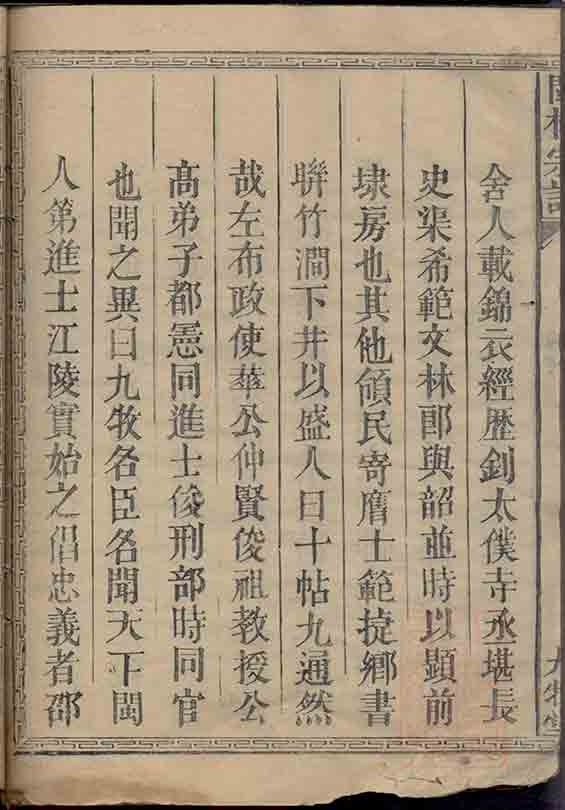 林宗譜
舍人載錦衣經歷釗太僕寺丞堪長
史渠希範文林郎與韶並時以顯前
埭房也其他頎民寄膺士範捷鄉書
聨竹澗下井以盛人曰十帖九通然
哉左布政使華公仲賢俊祖教授公
髙弟子都憲同進士俊刑部時同官
也聞之異曰九牧名臣名聞天下閩
人第進士江陵實始之倡忠義者邵
九牧堂